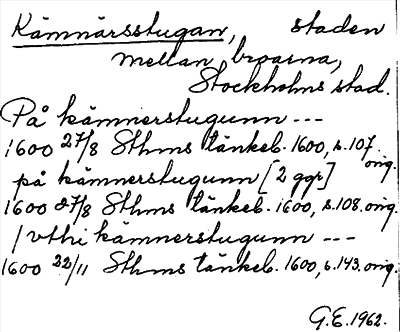 Kämnärsstugan, staden
mellan broarna,
Stockholms stad.
På kämnerstugunn ---
1600 27/8 Sthms tänkeb. 1600, s. 107.
orig.
på kämnerstugunn [2 ggr]
1600 27/8 Sthms tänkeb. 1600, s. 108. orig.
/vthi kämnerstugunn ---
1600 22/11 Sthms tänkeb. 1600, s. 143. orig.
G.E. 1962.